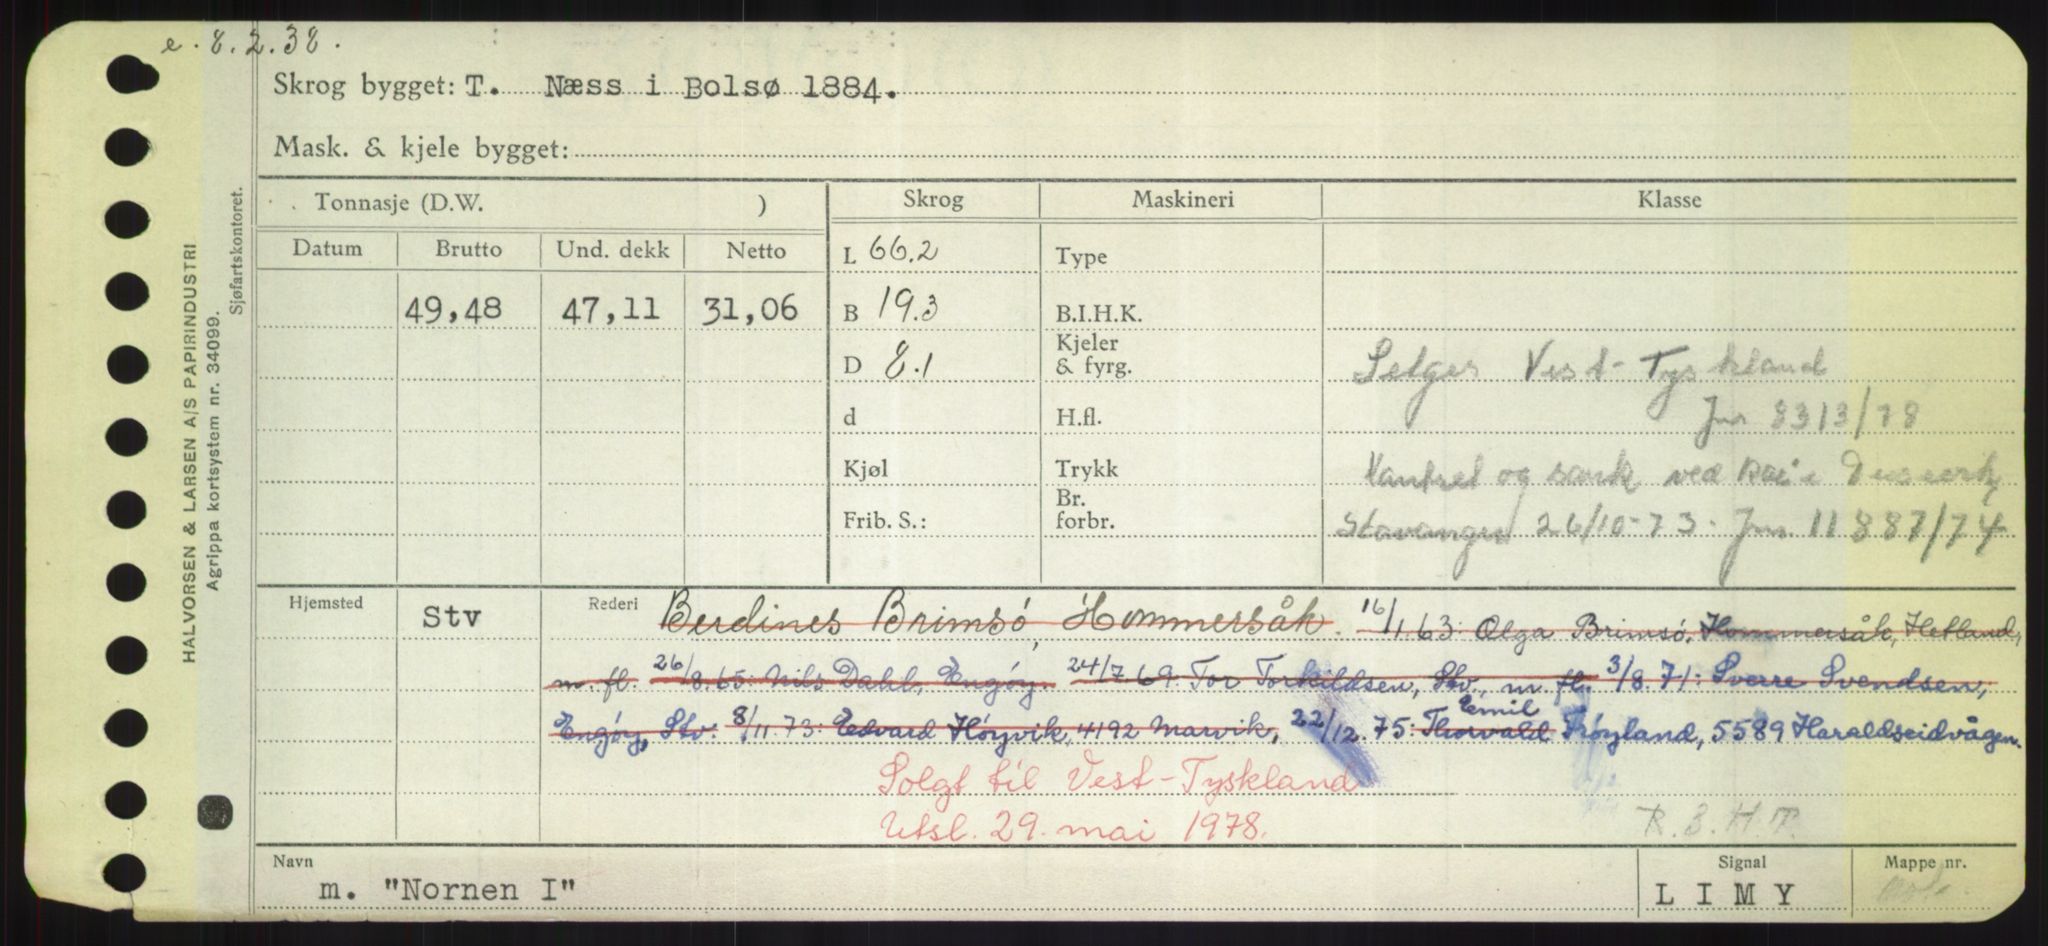 e. 8.2.38.
Skrog bygget: T. Næss i Bolsø 1884.
Mask. & kjele bygget:
HALVORSEN & LARSEN A/S PAPIRINDUSTRI
Agrippa kortsystem nr. 34099.
Sjøfartskontoret.
Tonnasje (D.W. ) Skrog Maskineri Klasse
Datum Brutto Und. dekk Netto
L 66.2 Type
49,48 47,11 31,06 B 19.3 B.I.H.K.
D 8.1 Kjeler & fyrg.
Selges Vest-Tyskland
d H.fl.
Jnr 8313/78
Kjøl Trykk
Kantret og sank ved kai i
Frib. S.: Br. forbr.
Stavanger 26/10-73. Jnr. 11887/74
Hjemsted Stv Rederi Berdines Brimsø, Hommersåk. 16/1.63: Olga Brimsø, Hommersåk, Hetland,
m. fl. 26/8.65: Nils Dahl, Engøy. 24/7.69: Tor Torkildsen, Stv., m. fl. 3/8.71: Sverre Svendsen,
Engøy, Stv. 8/11.73: Edvard Høyvik, 4192 Marvik, 22/12.75: Thorvald Emil Frøyland, 5589 Haraldseidvågen.
Solgt til Vest-Tyskland
Utsl. 29. mai 1978.
R.B.H.T.
Navn Signal Mappe nr.
m. "Nornen I" LIMY